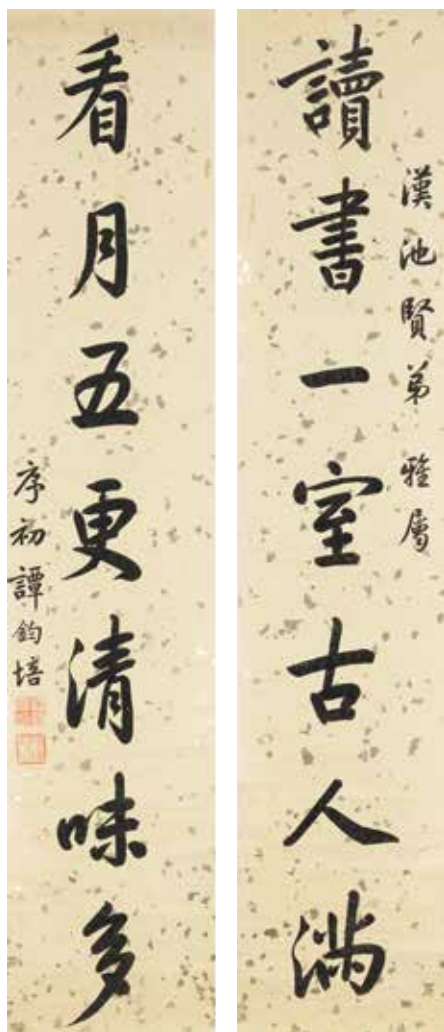 讀書一室古人滿
漢池賢弟雅屬
看月五更清味多
序初譚鈞培